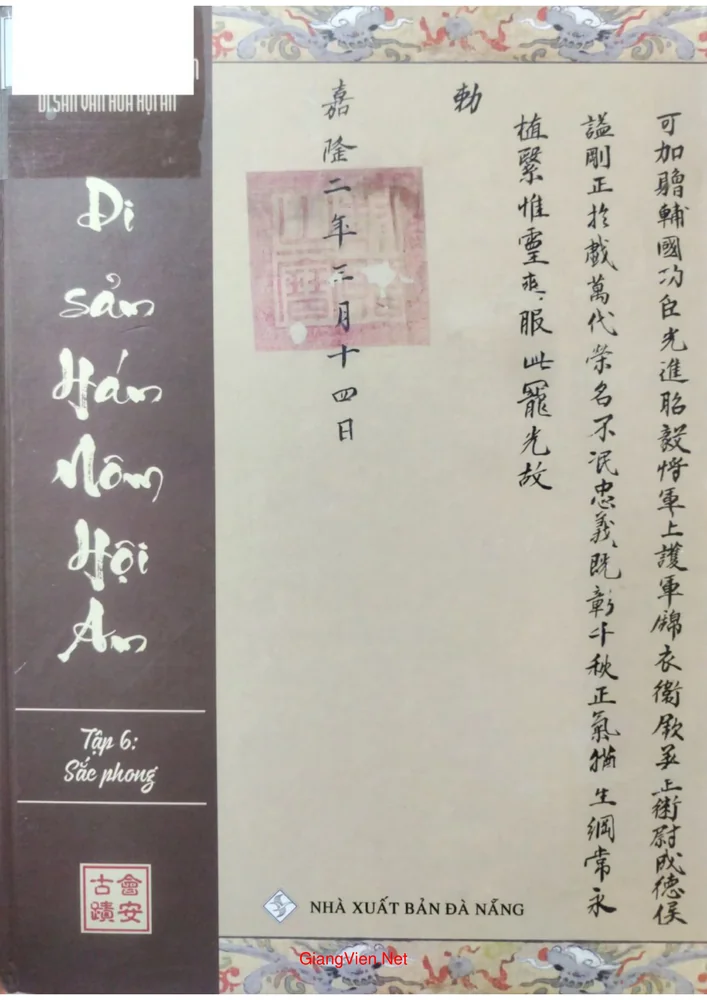 DI SẢN VĂN HÓA HỘI AN
Di
sản
Hán
Nôm
Hội
An
Tập 6:
Sắc phong
會安
古蹟
可加贈輔國功臣光進昭毅將軍上護軍錦衣衛欽差正衛尉成德侯
謚剛正於戲萬代榮名不泯忠義既彰千秋正氣猶生綱常永
植繄惟靈爽服此寵光故
勅
嘉隆二年三月十四日
NHÀ XUẤT BẢN ĐÀ NẴNG
GiangVien.Net